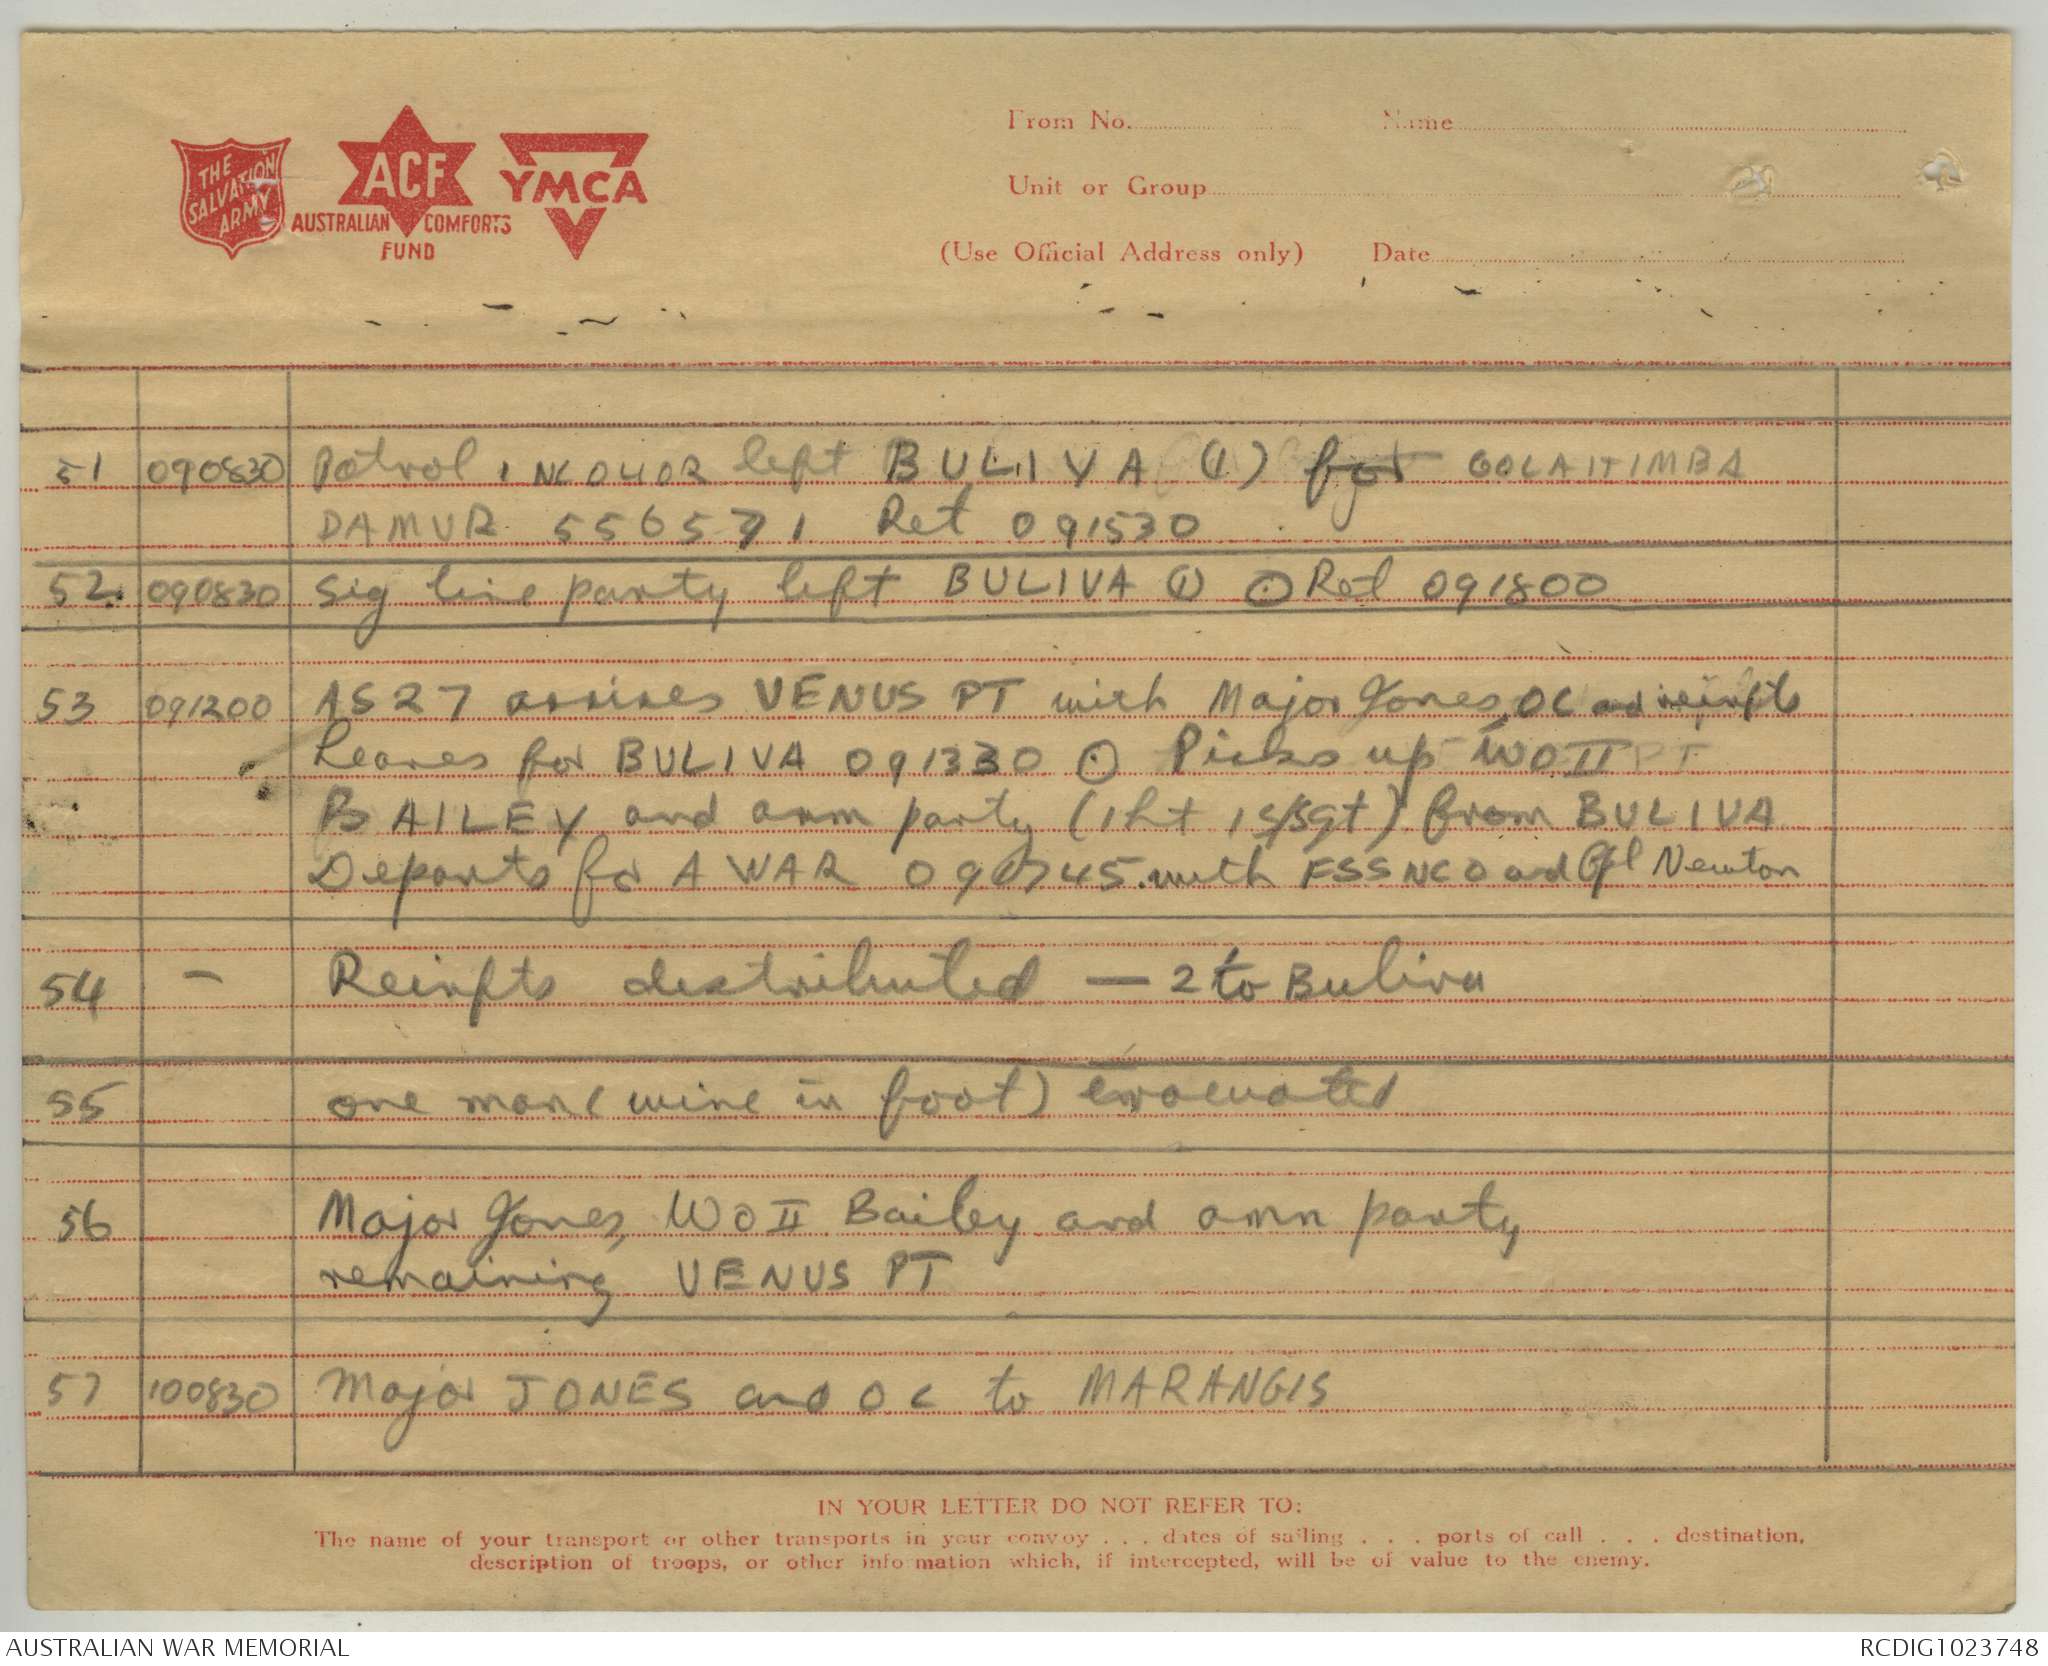 THE
SALVATION
ARMY
ACF
AUSTRALIAN COMFORTS
FUND
YMCA
From No. Name
Unit or Group
(Use Official Address only) Date
51 090830 Patrol 1 NCO 4 OR left BULIVA (1) for GOLAITIMBA
DAMUR 556571 Ret 091530
52. 090830 Sig line party left BULIVA (1) ⊙ Ret 091800
53 091200 AS27 arrives VENUS PT with Major Jones, OC and reinfts
Leaves for BULIVA 091330 ⊙ Picks up WOII
BAILEY and amm party (1 Lt 1 S/Sgt) from BULIVA
Departs for AWAR 091745. with FSS NCO and Cpl Newton
54 - Reinfts distributed — 2 to Buliva
55 one man (wire in foot) evacuated
56 Major Jones, WOII Bailey and amn party
remaining VENUS PT
57 100830 Major JONES and OC to MARANGIS
IN YOUR LETTER DO NOT REFER TO:
The name of your transport or other transports in your convoy . . . dates of sailing . . . ports of call . . . destination,
description of troops, or other information which, if intercepted, will be of value to the enemy.
AUSTRALIAN WAR MEMORIAL RCDIG1023748